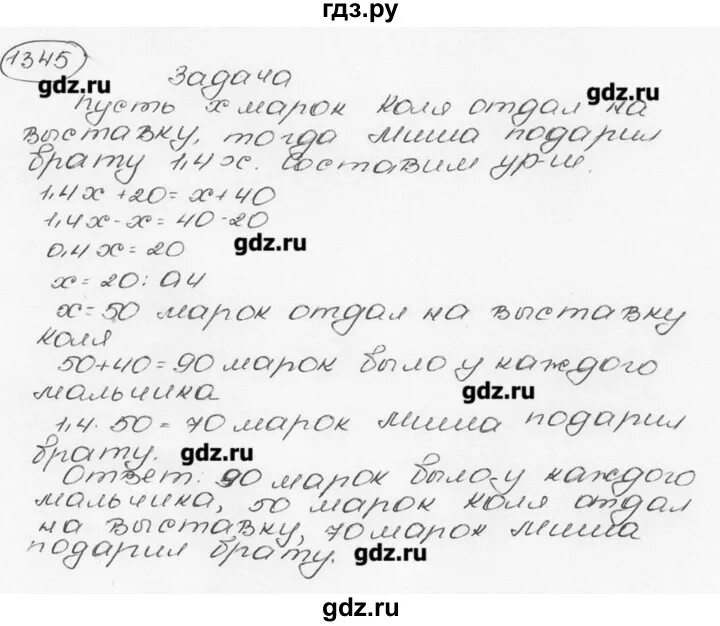 гдз.ру
1345
Задача
gdz.ru
gdz.ru
Пусть x марок Коля отдал на
выставку, тогда Миша подарил
брату 1,4x. Составим ур-ие.
1,4x + 20 = x + 40
1,4x - x = 40 - 20
0,4x = 20
gdz.ru
x = 20 : 0,4
x = 50 марок отдал на выставку
Коля
50 + 40 = 90 марок было у каждого
мальчика
gdz.ru
1,4 · 50 = 70 марок Миша подарил
брату.
gdz.ru
Ответ: 90 марок было у каждого
мальчика, 50 марок Коля отдал
на выставку, 70 марок Миша
подарил брату.
gdz.ru
gdz.ru